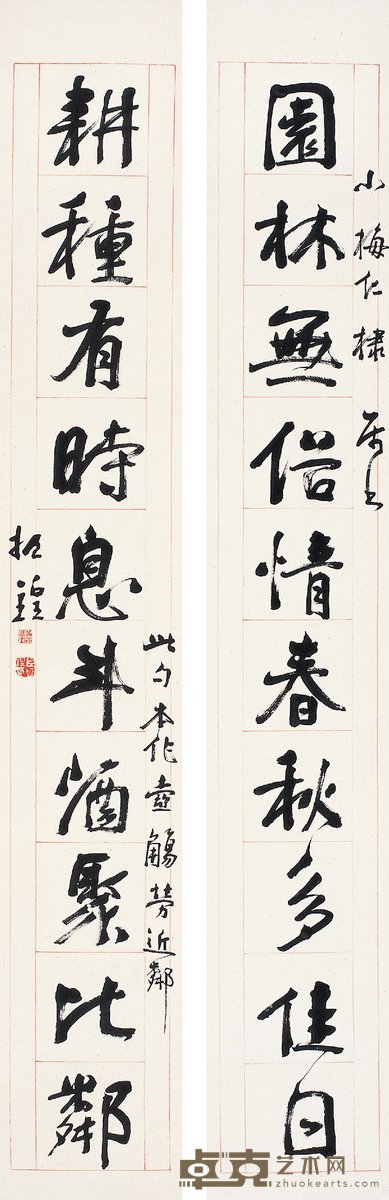 小梅仁棣 屬書
園林無俗情春秋多佳日
此句本作壺觴勞近鄰
耕種有時息斗酒聚比鄰
振鍠
卓克艺术网
zhuokearts.com